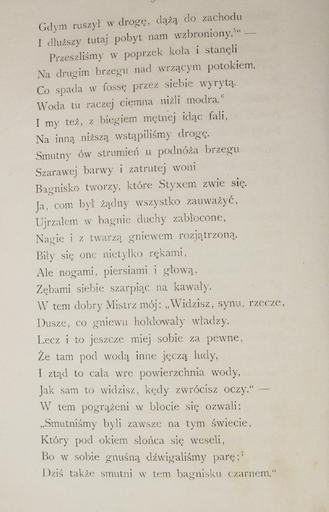 Gdym ruszył w drogę, dążą do zachodu
I dłuższy tutaj pobyt nam wzbroniony.⁵“ —
Przeszliśmy w poprzek koła i stanęli
Na drugim brzegu nad wrzącym potokiem,
Co spada w fossę przez siebie wyrytą.
Woda tu raczej ciemna niżli modra.⁶
I my też, z biegiem mętnej idąc fali,
Na inną niższą wstąpiliśmy drogę.
Smutny ów strumień u podnóża brzegu
Szarawej barwy i zatrutej woni
Bagnisko tworzy, które Styxem zwie się.
Ja, com był żądny wszystko zauważyć,
Ujrzałem w bagnie duchy zabłocone,
Nagie i z twarzą gniewem rozjątrzoną.
Biły się one nietylko rękami,
Ale nogami, piersiami i głową,
Zębami siebie szarpiąc na kawały.
W tem dobry Mistrz mój: „Widzisz, synu, rzecze,
Dusze, co gniewu hołdowały władzy.
Lecz i to jeszcze miej sobie za pewne,
Że tam pod wodą inne jęczą ludy,
I ztąd to cała wre powierzchnia wody,
Jak sam to widzisz, kędy zwrócisz oczy.“ —
W tem pogrążeni w błocie się ozwali:
„Smutniśmy byli zawsze na tym świecie,
Który pod okiem słońca się weseli,
Bo w sobie gnuśną dźwigaliśmy parę;⁷
Dziś także smutni w tem bagnisku czarnem.“